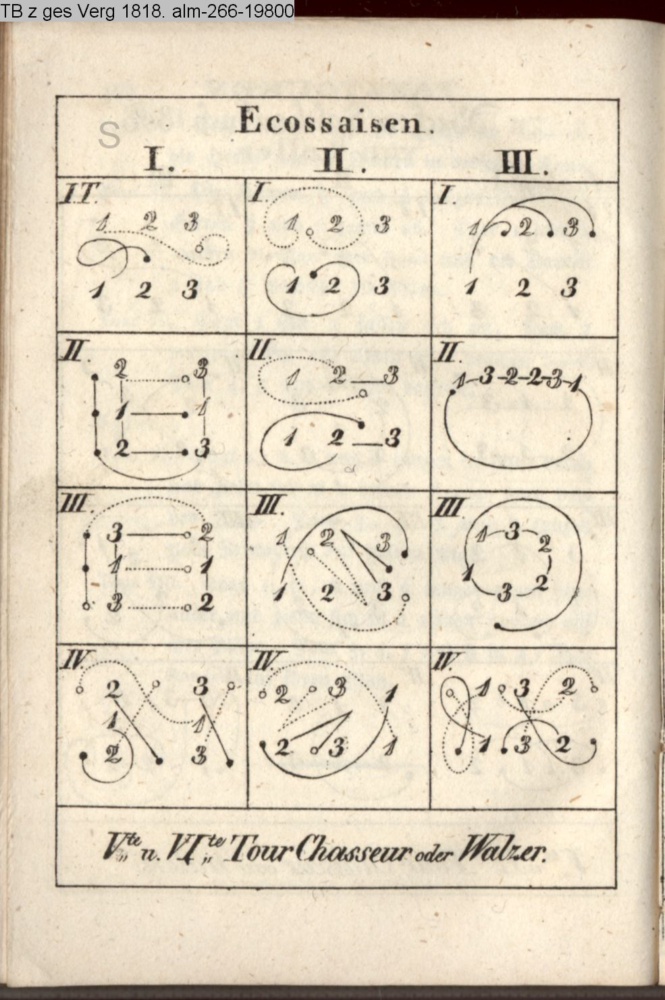 TB z ges Verg 1818. alm-266-19800
S
Ecossaisen.
I. II. III.
IT. I. I.
1 2 3 1 2 3 1 2 3
1 2 3 1 2 3 1 2 3
II II. II.
2 3 1 2 3 1 3 2 2 3 1
1 1
2 3 1 2 3
III. III. III
3 2 1 2 3 1 3 2
1 1
3 2 1 2 3 1 3 2
IV IV IV.
2 3 2 3 1 1 3 2
1 1
2 3 2 3 1 1 3 2
V,,te u. VI,,te Tour Chasseur oder Walzer.